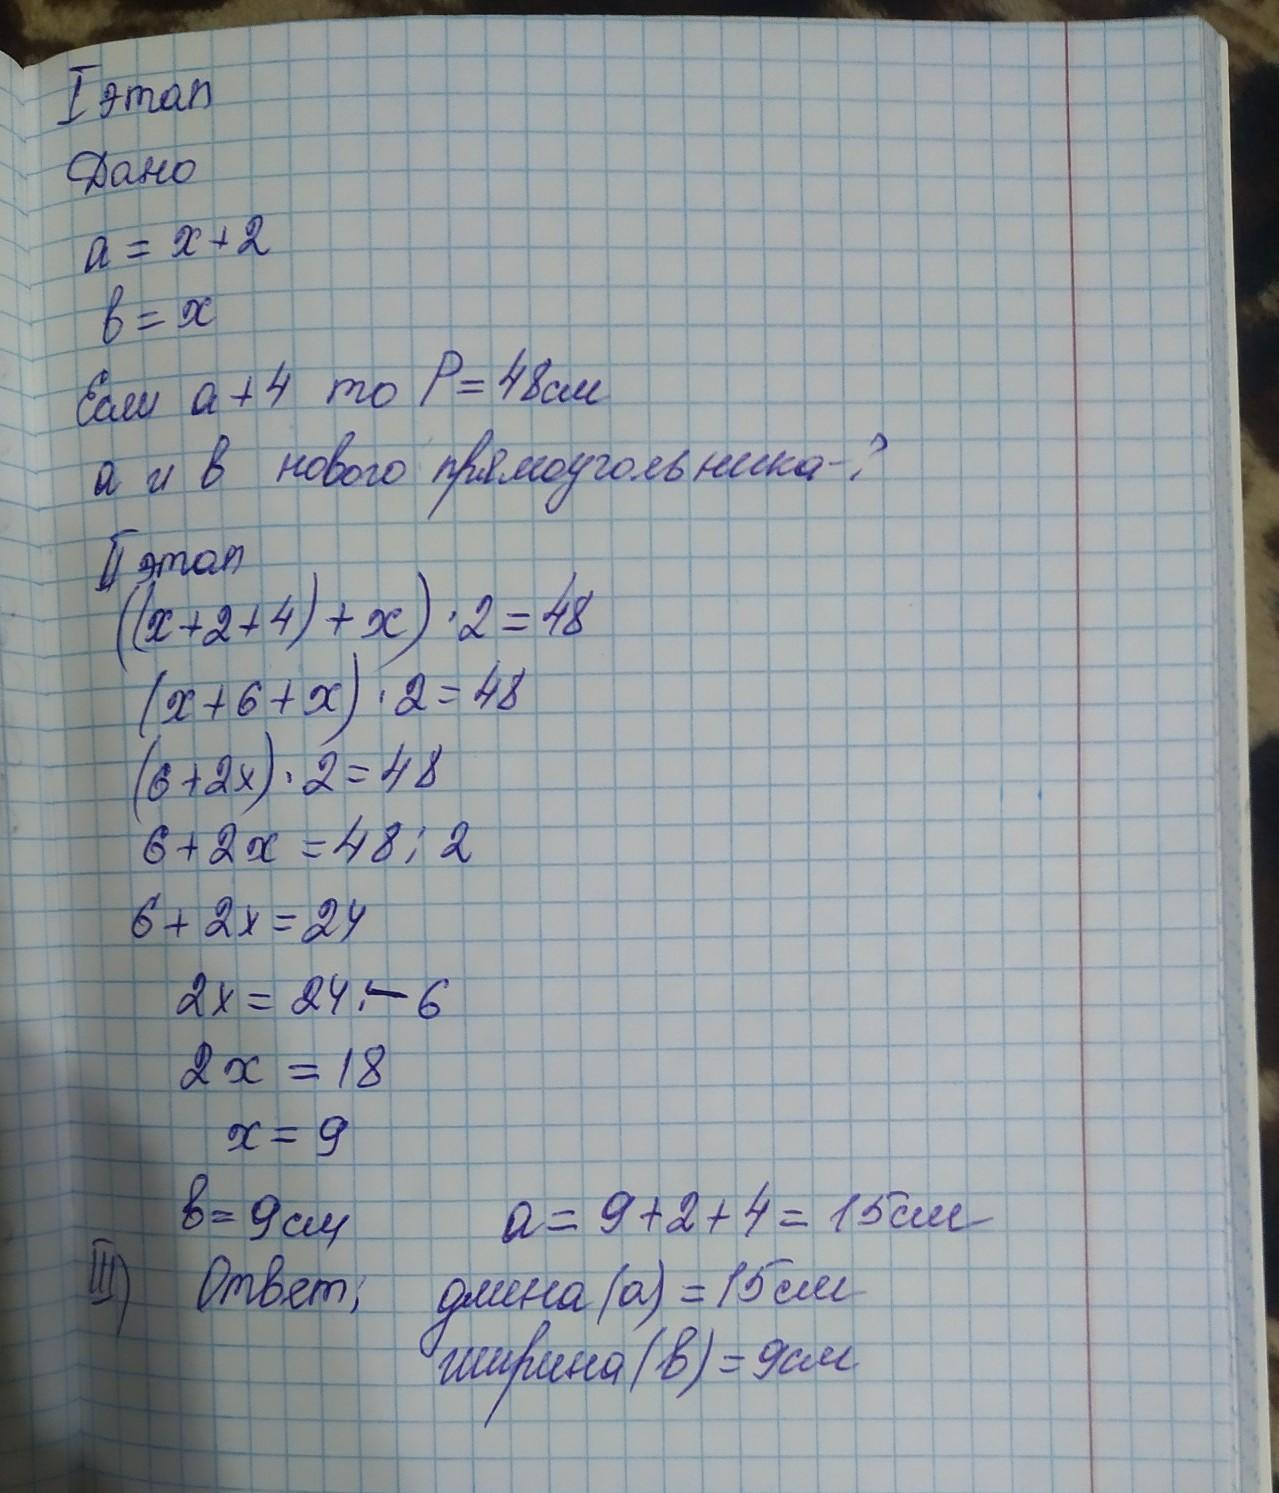 I этап
Дано
a = x+2
в = x
Если a+4 то P = 48см
a и в нового прямоугольника-?
II этап
((x+2+4)+x)·2=48
(x+6+x)·2=48
(6+2x)·2=48
6+2x=48:2
6+2x=24
2x=24-6
2x=18
x=9
в=9см a=9+2+4=15см
III) Ответ: длина(a)=15см
ширина(в)=9см